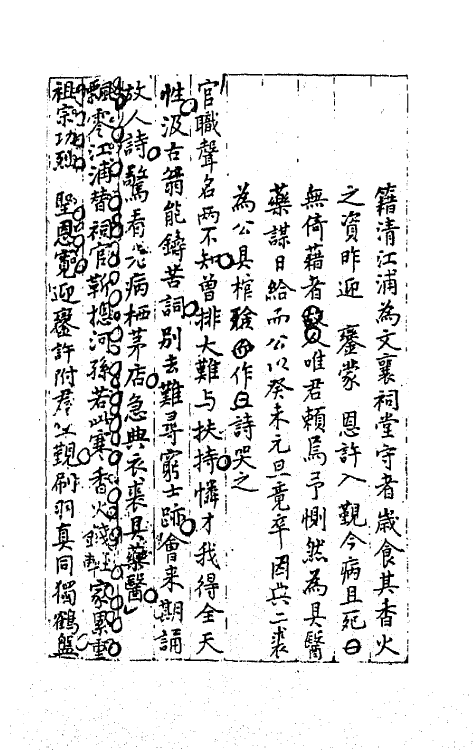 籍清江浦為文襄祠堂守者歲食其香火
之資昨迎鑾蒙恩許入覲今病且死曰
無倚藉者唯君賴焉予惻然為具醫
藥謀日給而公以癸未元旦竟卒因典二裘
為公具棺殮作詩哭之
官職聲名两不知曾排大難与扶持憐才我得全天
性汲古翁能鑄苦詞別去難尋窮士跡會来期誦
故人詩驚看老病栖茅店急典衣裘具藥醫
飄零江浦替祠官靳總河孫若此寒香火錢
家累重
祖宗功烈聖恩寬迎鑾許附群工覲刷羽真同獨鶴盤